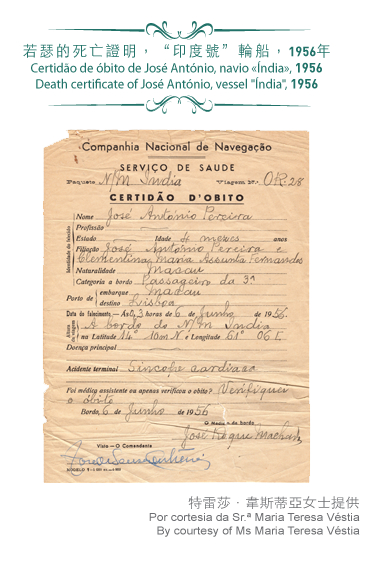 若瑟的死亡證明，“印度號”輪船，1956年
Certidão de óbito de José António, navio «Índia», 1956
Death certificate of José António, vessel "Índia", 1956
Companhia Nacional de Navegação
SERVIÇO DE SAUDE
Paquete N/M India Viagem N.º OR.28
CERTIDÃO D'OBITO
Identidade do falecido
Nome José António Pereira
Profissão
Estado Idade 4 meses anos
Filiação José António Pereira e
Clementina Maria Assunta Fernandes
Naturalidade Macau
Categoria a bordo Passageiro da 3ª
Porto de embarque Macau
destino Lisboa
Data do falecimento.—Às 0,3 horas de 6 de Junho de 1956.
A bordo do N/M India
na Latitude 14° 10m N e Longitude 61° 06 E.
Doença principal
Acidente terminal Sincope cardiaca
Foi médico assistente ou apenas verificou o óbito? Verifiquei
o óbito
Bordo, 6 de Junho de 1956
O Medico de bordo
José Roque Machado
Visto - O Comandante
MODELO
特雷莎．韋斯蒂亞女士提供
Por cortesia da Sr.ª Maria Teresa Véstia
By courtesy of Ms Maria Teresa Véstia